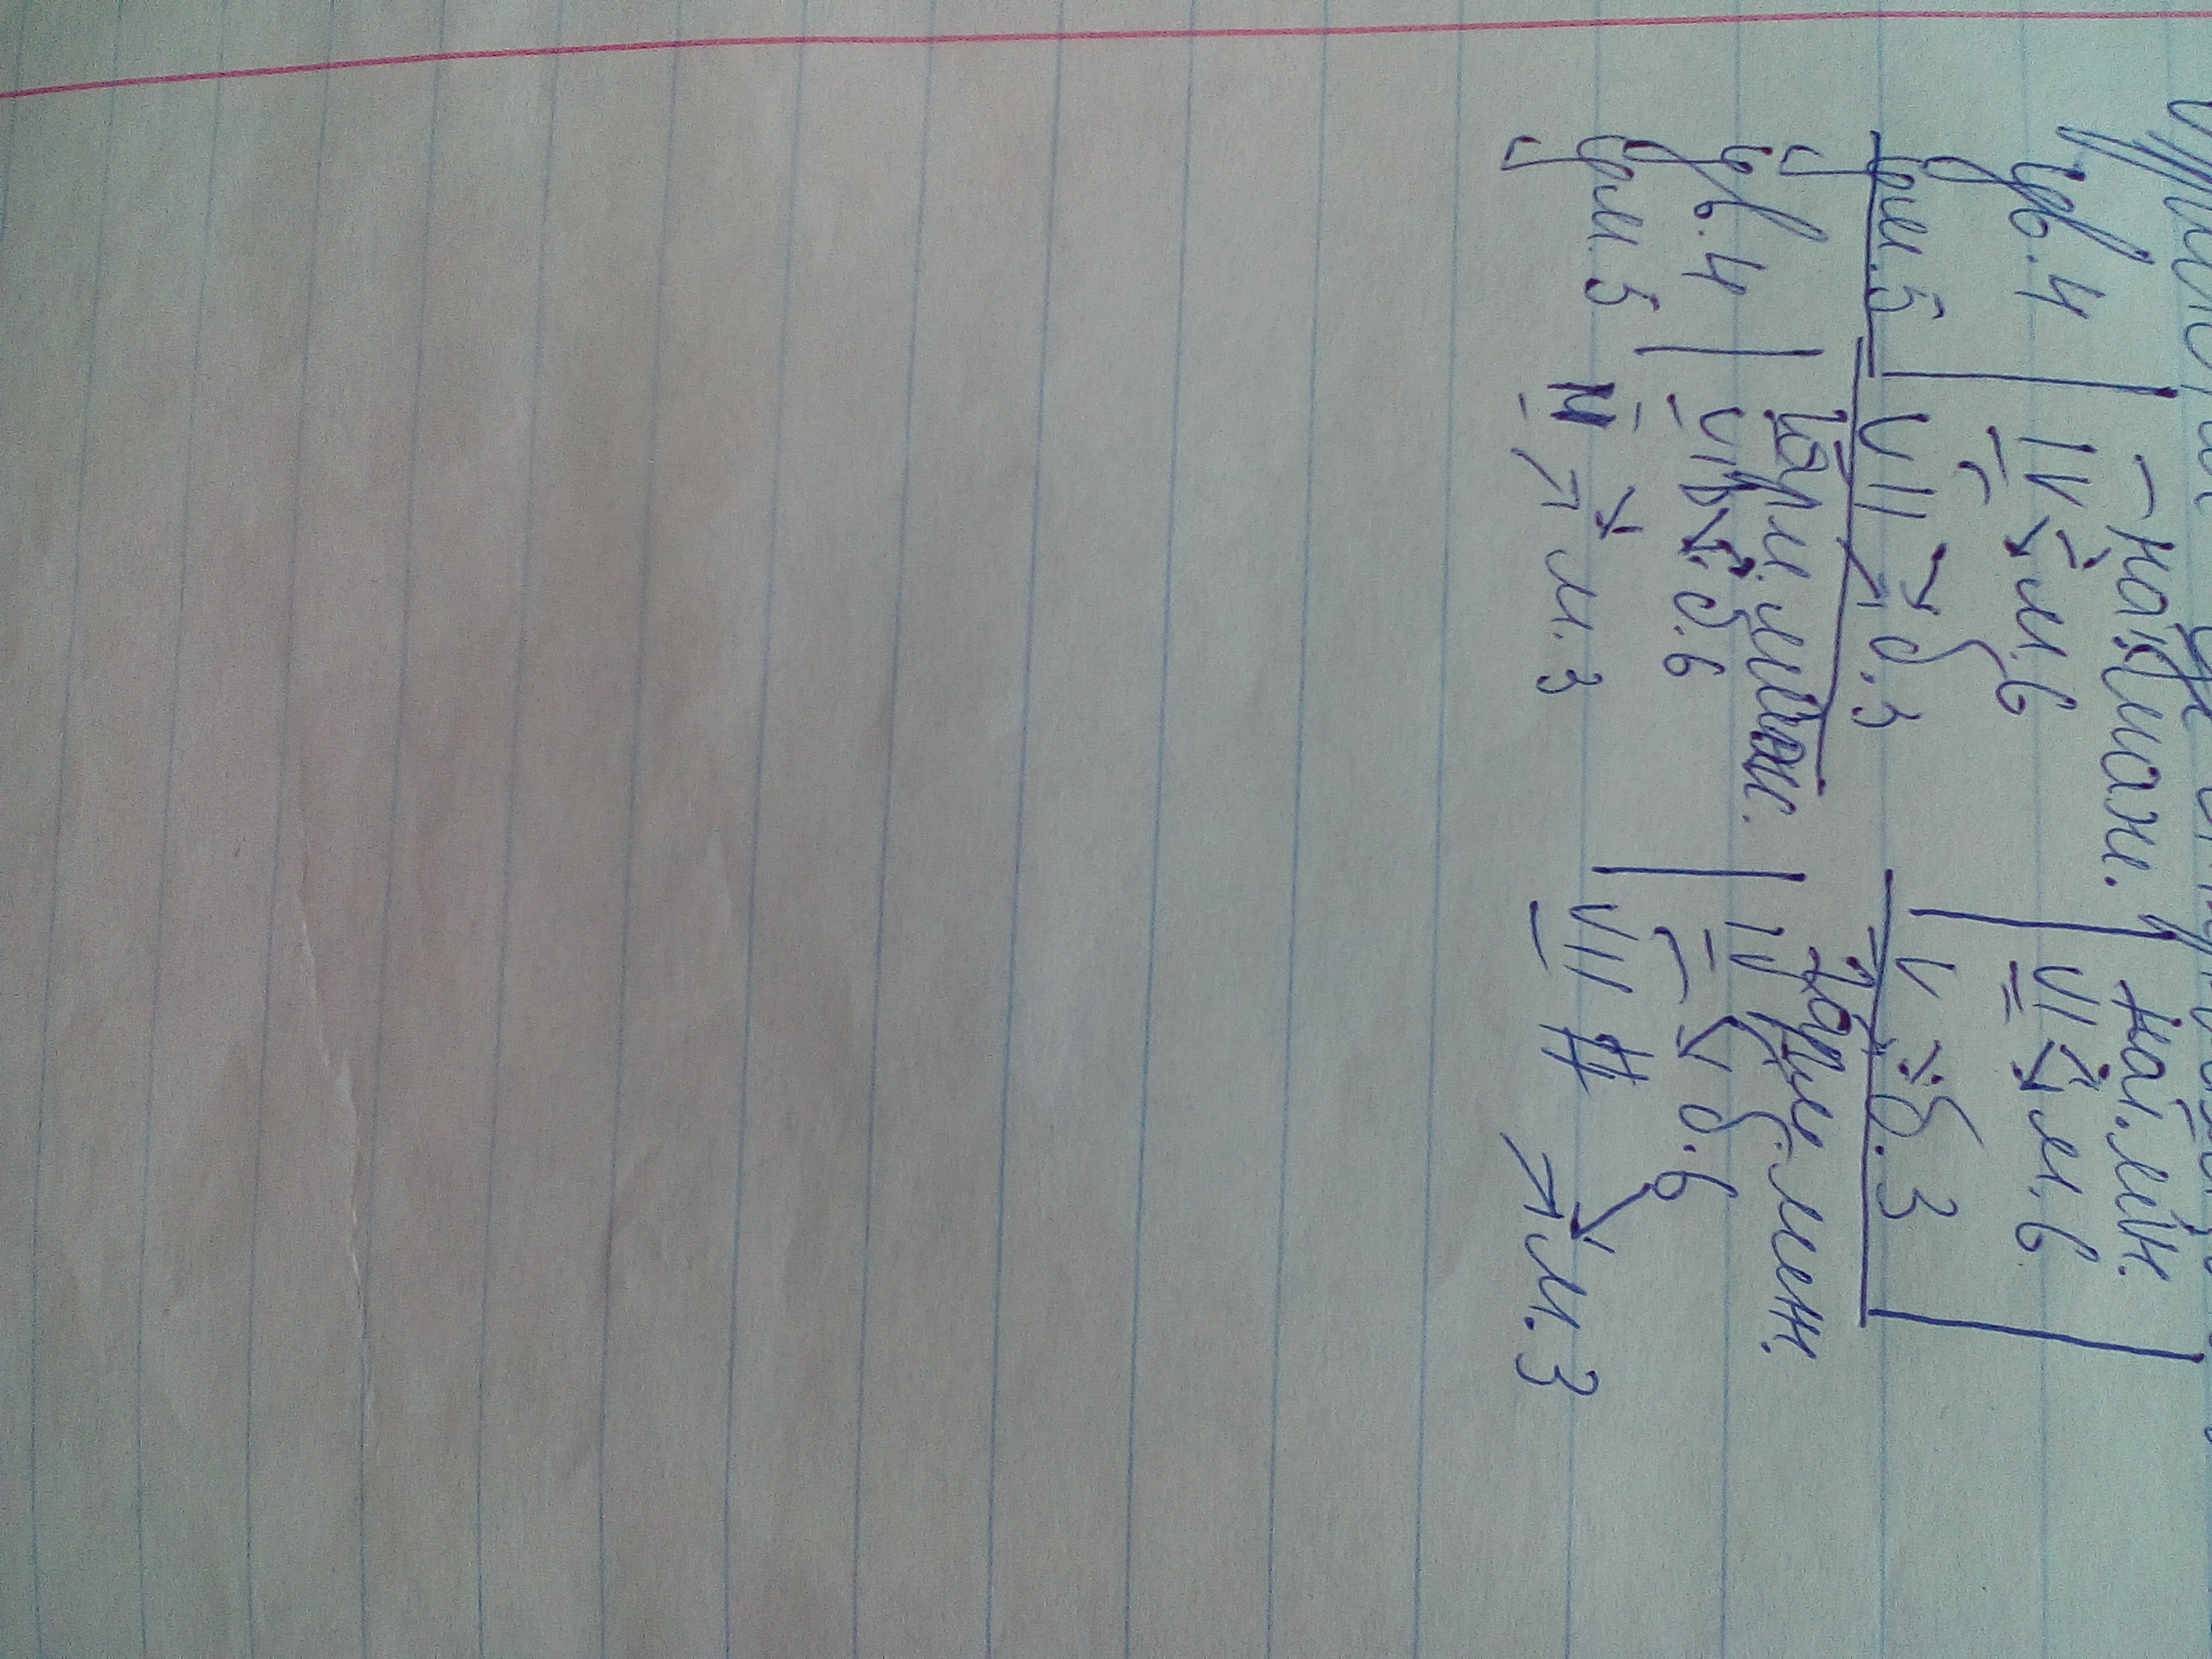 - нат. маж. нат. мин.
ув. 4 IV → м. 6 VI → м. 6
ум. 5 VII → б. 3 → б. 3
Гарм. маж. Гарм. мин.
ув. 4 → б. 6 IV → б. 6
ум. 5 → м. 3 VII # → м. 3